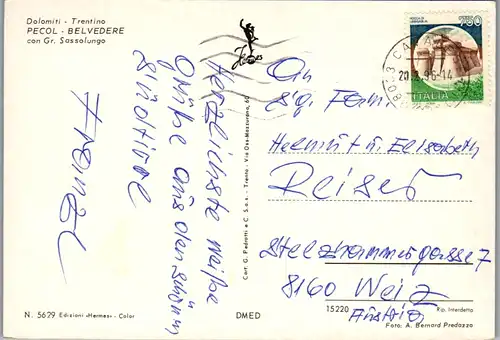 Dolomiti - Trentino
PECOL - BELVEDERE
con Gr. Sassolungo
Herzlichste weiße
Grüße aus den schönen
Südtirol
Franzl
Cart. G. Pedrotti e C. S.a.s. - Trento - Via Oss-Mazzurana, 60
750
ITALIA
20. 96-14
An
Fam.
Helmut u. Elisabeth
Reiser
Stelzhammergasse 7
8160 Weiz
Austria
15220
Rip. Interdetta
Foto: A. Bernard Predazzo
N. 5629 Edizioni «Hermes» - Color
DMED